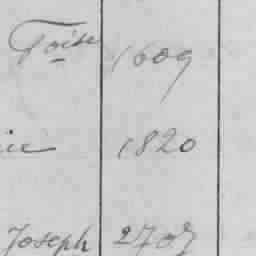 Toise 1609
ie 1820
Joseph 2707